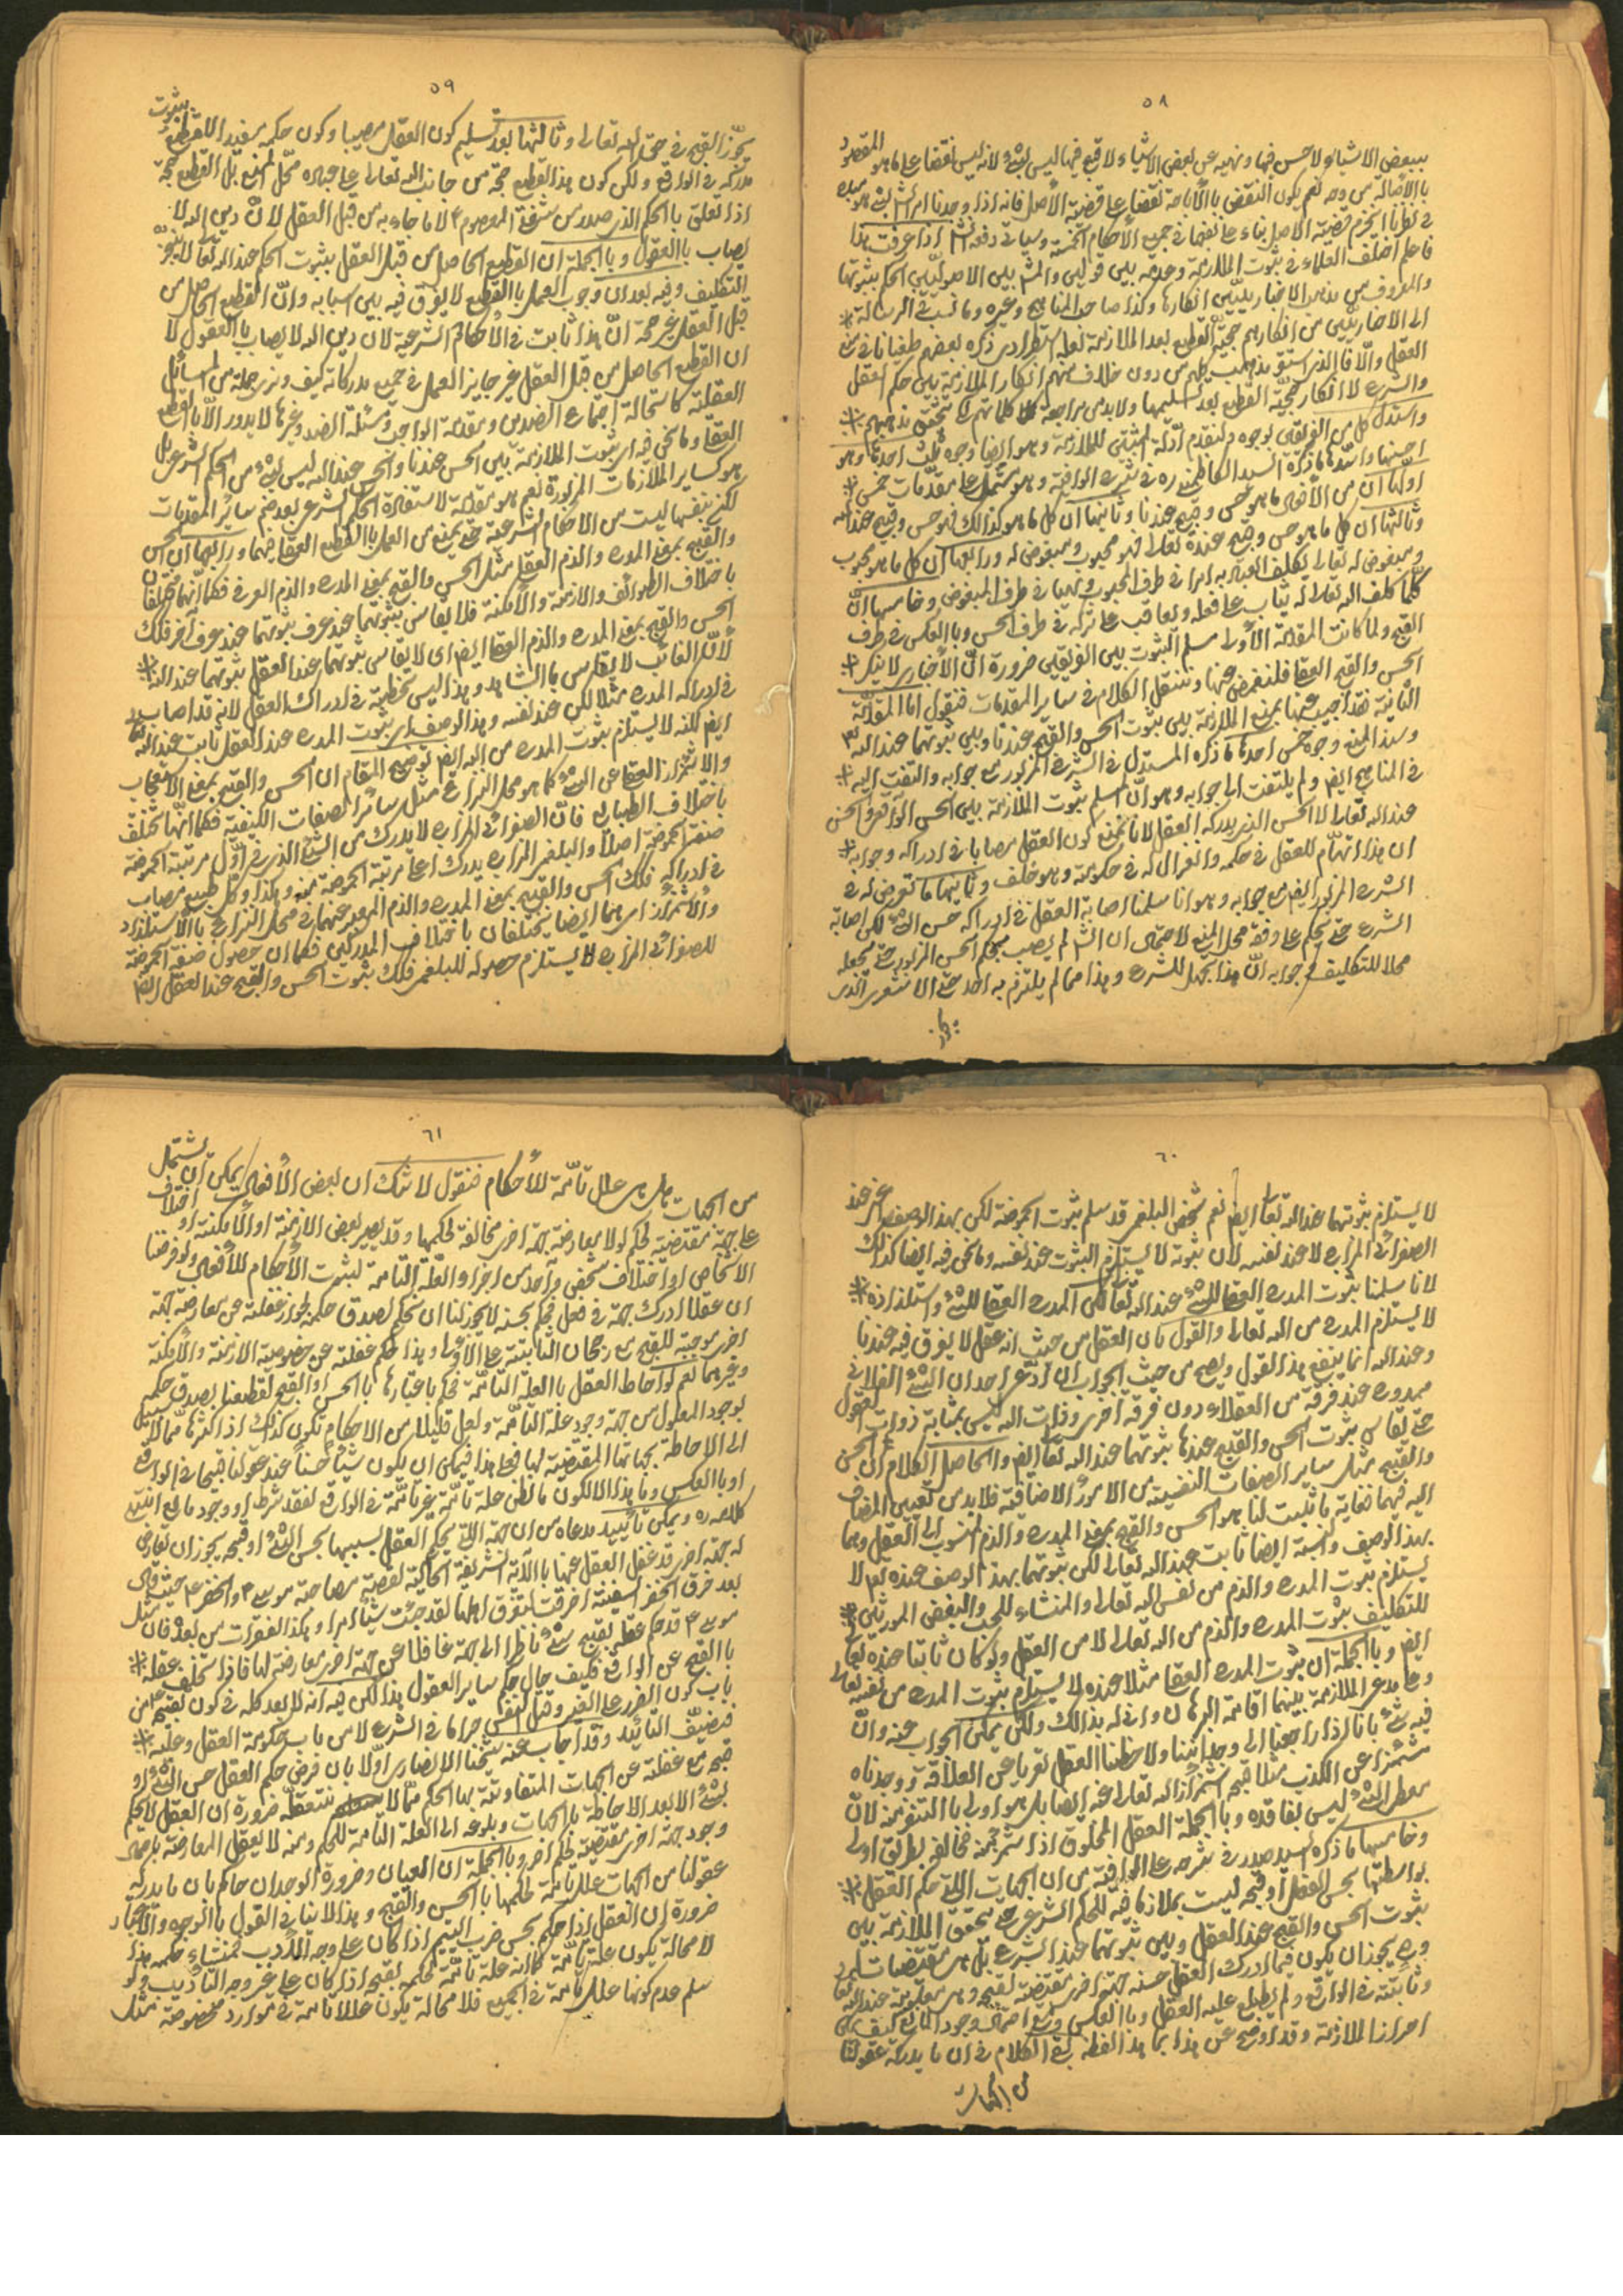 ٥٨
ببعض الاشياء لا حسن فيها ونهيه عن بعض الاشياء لا قبح فيها ليس بشئ لانه ليس نقضا على ما هو المقصود
بالاصالة من وجه نعم يكون النقض بالاباحة نقضا على قضية الاصل فانه اذا وجدنا امرا
في نظرنا انخرم قضية الاصل بناء على تفهما في جميع الأحكام الخمسة وسياتي دفعه اذا عرفت هذا
فاعلم اختلف العلماء في ثبوت الملازمة وعدمه بين قولين والمش بين الاصوليين الحكم بثبوتها
والمعروف من مذهب الاخباريين انكارها وكذا صاحب المناهج وغيره وما نسب في الرسالة
الى الاخباريين من انكارهم حجية القطع بعد الملازمة لعله استطراد ذكره بعضهم طغيانا في
العقل والا فالذى استقر مذهب كلهم من دون خلاف منهم انكار الملازمة بين حكم العقل
والشرع لا انكار حجية القطع بعد تسليمها ولا بد من مراجعة كلماتهم حتى تحقق مذهبهم
واستدل كل من الفريقين بوجوه ولنقدم ادلة المثبتين للملازمة وهو ايضا وجوه ثلث احدها وهو
احسنها واسدها ما ذكره السيد الكاظمى ره في شرح الوافية وهو مشتمل على مقدمات خمس
اولها ان من الأفعال ما هو حسن وقبيح عندنا وثانيها ان كل ما هو كذلك فهو حسن وقبيح عند الله
وثالثها ان كل ما هو حسن وقبيح عنده تعالى فهو محبوب ومبغوض له ورابعها ان كل ما هو محبوب
ومبغوض له تعالى لكلف العباد به امرا في طرف المحبوب ونهيا في طرف المبغوض وخامسها ان
كلما كلف الله تعالى يثاب على فعله ويعاقب على تركه في طرف الحسن وبالعكس في طرف
القبح ولما كانت المقدمة الأولى مسلم الثبوت بين الفريقين ضرورة ان الأخبارى لا ينكر
الحسن والقبح العقلى فلنغمض عنها وننقل الكلام في ساير المقدمات فنقول اما المقدمة
الثانية فقد اجيب عنها بمنع الملازمة بين ثبوت الحسن والقبح عندنا وبين ثبوتهما عند الله
وسند المنع وجوه خمس احدها ما ذكره المستدل في الشرح المزبور مع جوابه والتفت اليه
في المناهج ايض ولم يلتفت الى جوابه وهو ان المسلم ثبوت الملازمة بين الحسن الواقعى والحسن
عند الله تعالى لا الحسن الذى يدركه العقل لانا نمنع كون العقل مصابا في ادراكه وجوابه
ان هذا اتهام للعقل في حكمه وانعزال له في حكومته وهو خلف وثانيها ما تعرض له في
الشرح المزبور ايض مع جوابه وهو انا سلمنا اصابة العقل في ادراكه حسن الشئ لكن اصابة
الشرع حتى يحكم على وفقه محل المنع لاحتمال ان الش لم يصب بحكم الحسن المزبور حتى يجعله
محلا للتكليف وجوابه ان هذا تجهيل للشرع وهذا مما لم يلتزم به احد حتى الاشعرى الذى
يجوز
٥٩
يجوز القبح في حق الله تعالى وثالثها بعد تسليم كون العقل مصيبا وكون حكمه مفيدا للقطع بثبوت
مدركه في الواقع ولكن كون هذا القطع حجة من جانب الله تعالى على عباده محل المنع بل القطع حجة
اذا تعلق بالحكم الذى صدر من شفة المعصوم ع لا ما جاء به من قبل العقل لأن دين الله لا
يصاب بالعقول وبالجملة ان القطع الحاصل من قبل العقل بثبوت الحكم عند الله تعالى لا يثبت
التكليف وفيه بعد ان وجوب العمل بالقطع لا يفرق فيه بين اسبابه وان القطع الحاصل من
قبل العقل غير حجة ان هذا ثابت في الأحكام الشرعية لان دين الله لا يصاب بالعقول لا
ان القطع الحاصل من قبل العقل غير جايز العمل في جميع مدركاته كيف ونرى جملة من المسائل
العقلية كاستحالة اجتماع الضدين ومقدمة الواجب ومسئلة الضد وغيرها لا يدور الا بالقطع
العقلى وما نحن فيه اى ثبوت الملازمة بين الحسن عندنا والحسن عند الله ليس بشئ من الحكم الشرعى بل
هو كساير الملازمات المزبورة نعم هو مقدمة لاستفادة الحكم الشرعى بعد ضم ساير المقدمات
لكن بنفسها ليست من الأحكام الشرعية حتى يمنع من العمل بالقطع العقلى فيها ورابعها ان الحسن
والقبح بمعنى المدح والذم العقلى مثل الحسن والقبح بمعنى المدح والذم العرفى فكما انهما مختلفان
باختلاف الطوائف والازمنة والأمكنة فلا يقاس بثبوتهما عند عرف ثبوتهما عند عرف آخر فكذلك
الحسن والقبح بمعنى المدح والذم العقلى ايض اى لا يقاس ثبوتهما عند العقل ثبوتهما عند الله
لأن الغائب لا يقاس بالشاهد وهذا ليس تخطئة في ادراك العقل لانه قد اصاب
في ادراكه المدح مثلا لكن عند نفسه وهذا الوصف اى ثبوت المدح عند العقل ثابت عند الله تعالى
ايض لكنه لا يستلزم ثبوت المدح من الله ايض توضيح المقام ان الحسن والقبح بمعنى الاستعجاب
والاشمئزاز العقلى عن الشئ كما هو محل النزاع مثل سائر الصفات الكيفية فكما انها تختلف
باختلاف الطبايع فان الصفرائى المزاج لا يدرك من الشئ الذى في اول مرتبة الحموضة
صفة الحموضة اصلا والبلغمى المزاج يدرك اعلى مرتبة الحموضة منه وهكذا وكل طبع مصاب
في ادراكه فكذلك الحسن والقبح بمعنى المدح والذم المعبر عنهما في محل النزاع بالاستلذاذ
والاشمئزاز امرهما ايضا يختلفان باختلاف المدركين فكما ان حصول صفة الحموضة
للصفرائى المزاج لا يستلزم حصوله للبلغمى فكذلك ثبوت الحسن والقبح عند العقل ايض
٦٠
لا يستلزم ثبوتهما عند الله تعالى ايض نعم شخص البلغمى قد سلم ثبوت الحموضة لكن بهذا الوصف عند
الصفرائى المزاج لا عند نفسه لان ثبوته لا يستلزم الثبوت عند نفسه وما نحن فيه ايضا كذلك
لانا سلمنا ثبوت المدح العقلى للشئ عند الله تعالى لكن المدح العقلى للشئ واستلذاذه
لا يستلزم المدح من الله تعالى والقول بان العقل من حيث انه عقل لا يفرق فيه عندنا
وعند الله انما ينفع هذا القول ويصح من حيث الجواب ان ادعى احد ان الشئ الفلانى
ممدوح عند فرقة من العقلاء دون فرقة اخرى وذات الله ليس بمثابة ذوات العقول
حتى يقاس ثبوت الحسن والقبح عندها ثبوتهما عند الله تعالى ايض والحاصل الكلام ان الحسن
والقبح مثل ساير الصفات النفسية من الامور الاضافية فلا بد من تعيين المضاف
اليه فيهما فغاية ما ثبت لنا هو الحسن والقبح بمعنى المدح والذم المنسوب الى العقل وهما
بهذا الوصف والنسبة ايضا ثابت عند الله تعالى لكن ثبوتهما بهذا الوصف عنده تعالى لا
يستلزم ثبوت المدح والذم من نفس الله تعالى والمنشاء للحب والبغض المورثين
للتكليف ثبوت المدح والذم من الله تعالى لا من العقل ولو كان ثابتا عنده تعالى
ايض وبالجملة ان ثبوت المدح العقلى مثلا عنده لا يستلزم ثبوت المدح من نفسه تعالى
وعلى مدعى الملازمة بينهما اقامة البرهان وانى له بذلك ولكن يمكن الجواب عنه وان
فيه شئ بانا اذا راجعنا الى وجداننا ولاحظنا العقل تعريا عن العلاقة ووجدناه
مشمئزا عن الكذب مثلا قبح اشمئزاز الله تعالى عنه ايضا بل هو اولى بالتنفر منه لان
معطى الشئ ليس بفاقده وبالجملة العقل المخلوق اذا اشمئز منه فخالقه بطريق اولى
وخامسها ما ذكره السيد صدر في شرحه على الوافية من ان الجهات التى حكم العقل
بواسطتها بحسن الفعل او قبحه ليست بملاك فيه للحكم الشرعى حتى تحقق الملازمة بين
ثبوت الحسن والقبح عند العقل وبين ثبوتهما عند الشرع بل هى مقتضيات
وح يجوز ان يكون فيما ادرك العقل حسنه جهة اخرى مقتضية لقبحه وهى معلومة عند الله تعالى
وثابتة في الواقع ولم يطلع عليه العقل وبالعكس ومع احتمال وجود المانع كيف يمكن
احراز الملازمة وقد اوضح عن هذا بما هذا لفظه بقى الكلام في ان ما يدركه عقولنا
من الجهات
٦١
من الجهات هل هى علل تامة للأحكام فنقول لا شك ان بعض الأفعال يمكن ان يشتمل
على جهة مقتضية لحكم لولا معارضة جهة اخرى مخالفة لحكمها وقد يصير بعض الازمنة او الأمكنة او اختلاف
الاشخاص او اختلاف شخص واحد من اجزاء العلة التامة لثبوت الأحكام للأفعال ولو فرضنا
ان عقلا ادرك جهة في فعل فحكم بحسنه لا يجوز لنا ان نحكم بصدق حكمه لجواز غفلته عن معارضة جهة
اخرى موجبة للقبح مع رجحان الثابتة على الاولى وهذا حكم غفلته عن خصوصية الازمنة والأمكنة
وغيرهما نعم لو احاط العقل بالعلة التامة فحكم باعتبارها بالحسن او القبح لقطعنا بصدق حكمه
لوجود المعلول من جهة وجود علة التامة ولعل قليلا من الاحكام تكون كذلك اذ اكثرها مما لا سبيل
الى الاحاطة بجهاتها المقتضية لها فعلى هذا فيمكن ان يكون شيئا حسنا عند عقولنا قبيحا في الواقع
او بالعكس وما هذا الا لكون ما نظن علة تامة غير تامة في الواقع لفقد شرط او وجود مانع انتهى
كلامه ره ويمكن تأييد مدعاه من ان جهة التى يحكم العقل بسببها بحسن الشئ او قبحه يجوز ان تعارض
له جهة اخرى قد غفل العقل عنها بالآية الشريفة الحاكية لقضية مصاحبة موسى ع والخضر ع حيث قال
بعد خرق الخضر السفينة اخرقتها لتغرق اهلها لقد جئت شيئا امرا وهكذا الفقرات من بعد فان
موسى ع قد حكم عقله بقبح شئ ناظرا الى جهة غافلا عن جهة اخرى معارضة لها فاذا تخلف عقله
بالقبح عن الواقع فكيف حال حكم ساير العقول هذا لكن فيه انه لا بعد كله في كون تقبيحه من
باب كون الضرر على الغير وقتل النفس حراما في الشرع لا من باب حكومة العقل وعليه
فيضيق التأئيد وقد اجاب عنه شيخنا الانصارى اولا بان فرض حكم العقل حسن الشئ او
قبحه مع غفلته عن الجهات المتفاوتة بها الحكم مما لا نتعقله ضرورة ان العقل لا يحكم
بشئ الا بعد الاحاطة بالجهات وبلوغه الى العلة التامة للحكم ومنه لا يعقل المعارضة باحتمال
وجود جهة اخرى مقتضية لحكم اخر وبالجملة ان العيان وضرورة الوجدان حاكم بان ما يدركه
عقولنا من الجهات علل تامة لحكمها بالحسن والقبح وهذا لا ينافى القول بالوجوه والاعتبار
ضرورة ان العقل اذا حكم بحسن ضرب اليتيم اذا كان على وجه التأديب فمنشاء حكمه هذا
لا محالة يكون علة تامة كما انه علة تامة لحكمه بقبحه اذا كان على غير وجه التأديب ولو
سلم عدم كونها علل تامة في الجميع فلا محالة يكون عللا تامة في موارد مخصوصة مثل